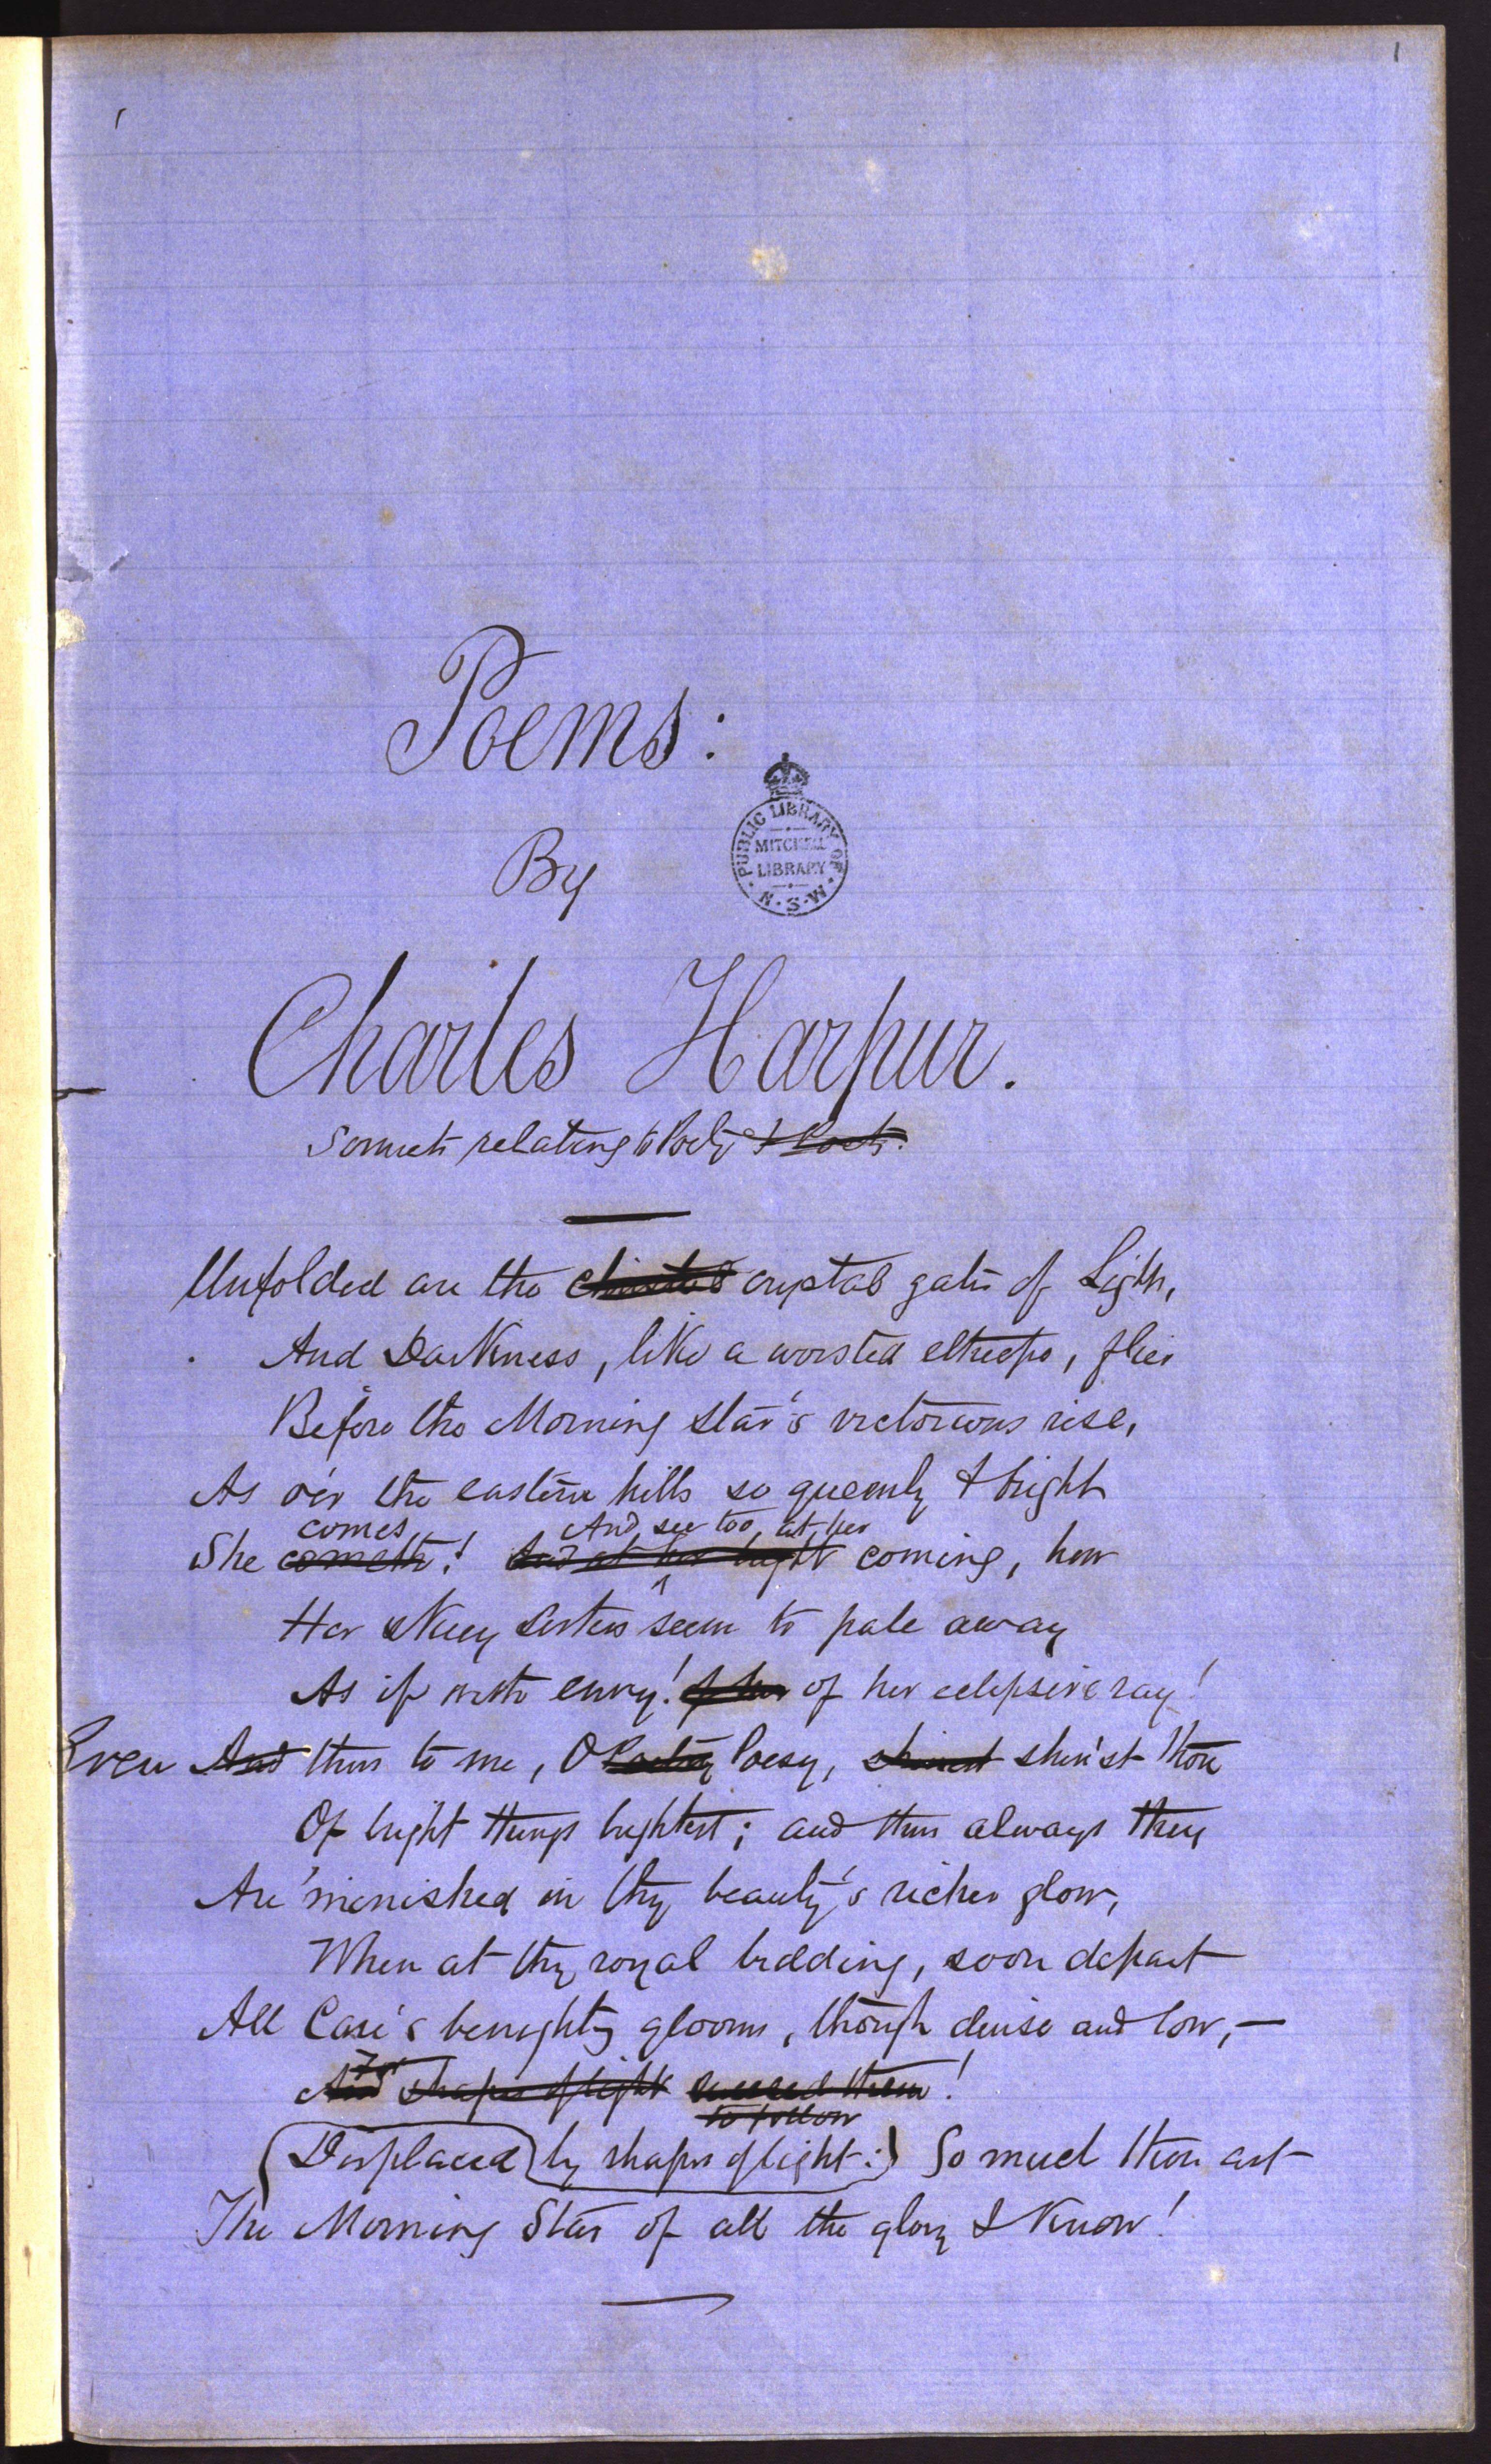 1
Poems:
PUBLIC LIBRARY OF N.S.W.
MITCHELL
LIBRARY
By
Charles Harpur.
Sonnets relating to Poetry & Poets.
Unfolded are the crystal gates of Light,
And Darkness, like a worsted , flies
Before the Morning Star's victorious rise,
As o'er the eastern hills so queenly & bright
comes And see too, at her
She cometh! And at her bright coming, how
Her starry sisters seem to pale away
As if with envy! of her of her eclipsive ray!
Even And thus to me, O Poetry Poesy, shinest shin'st thou
Of bright things brightest; and thus always they
Are 'minished in thy beauty's richer glow,
When at thy royal bidding, soon depart
All Care's benighting glooms, though dense and low,—
And shapes of light succeed them!
to follow
(Displaced) by shapes of light:) So much thou art
The Morning Star of all the glory I know!